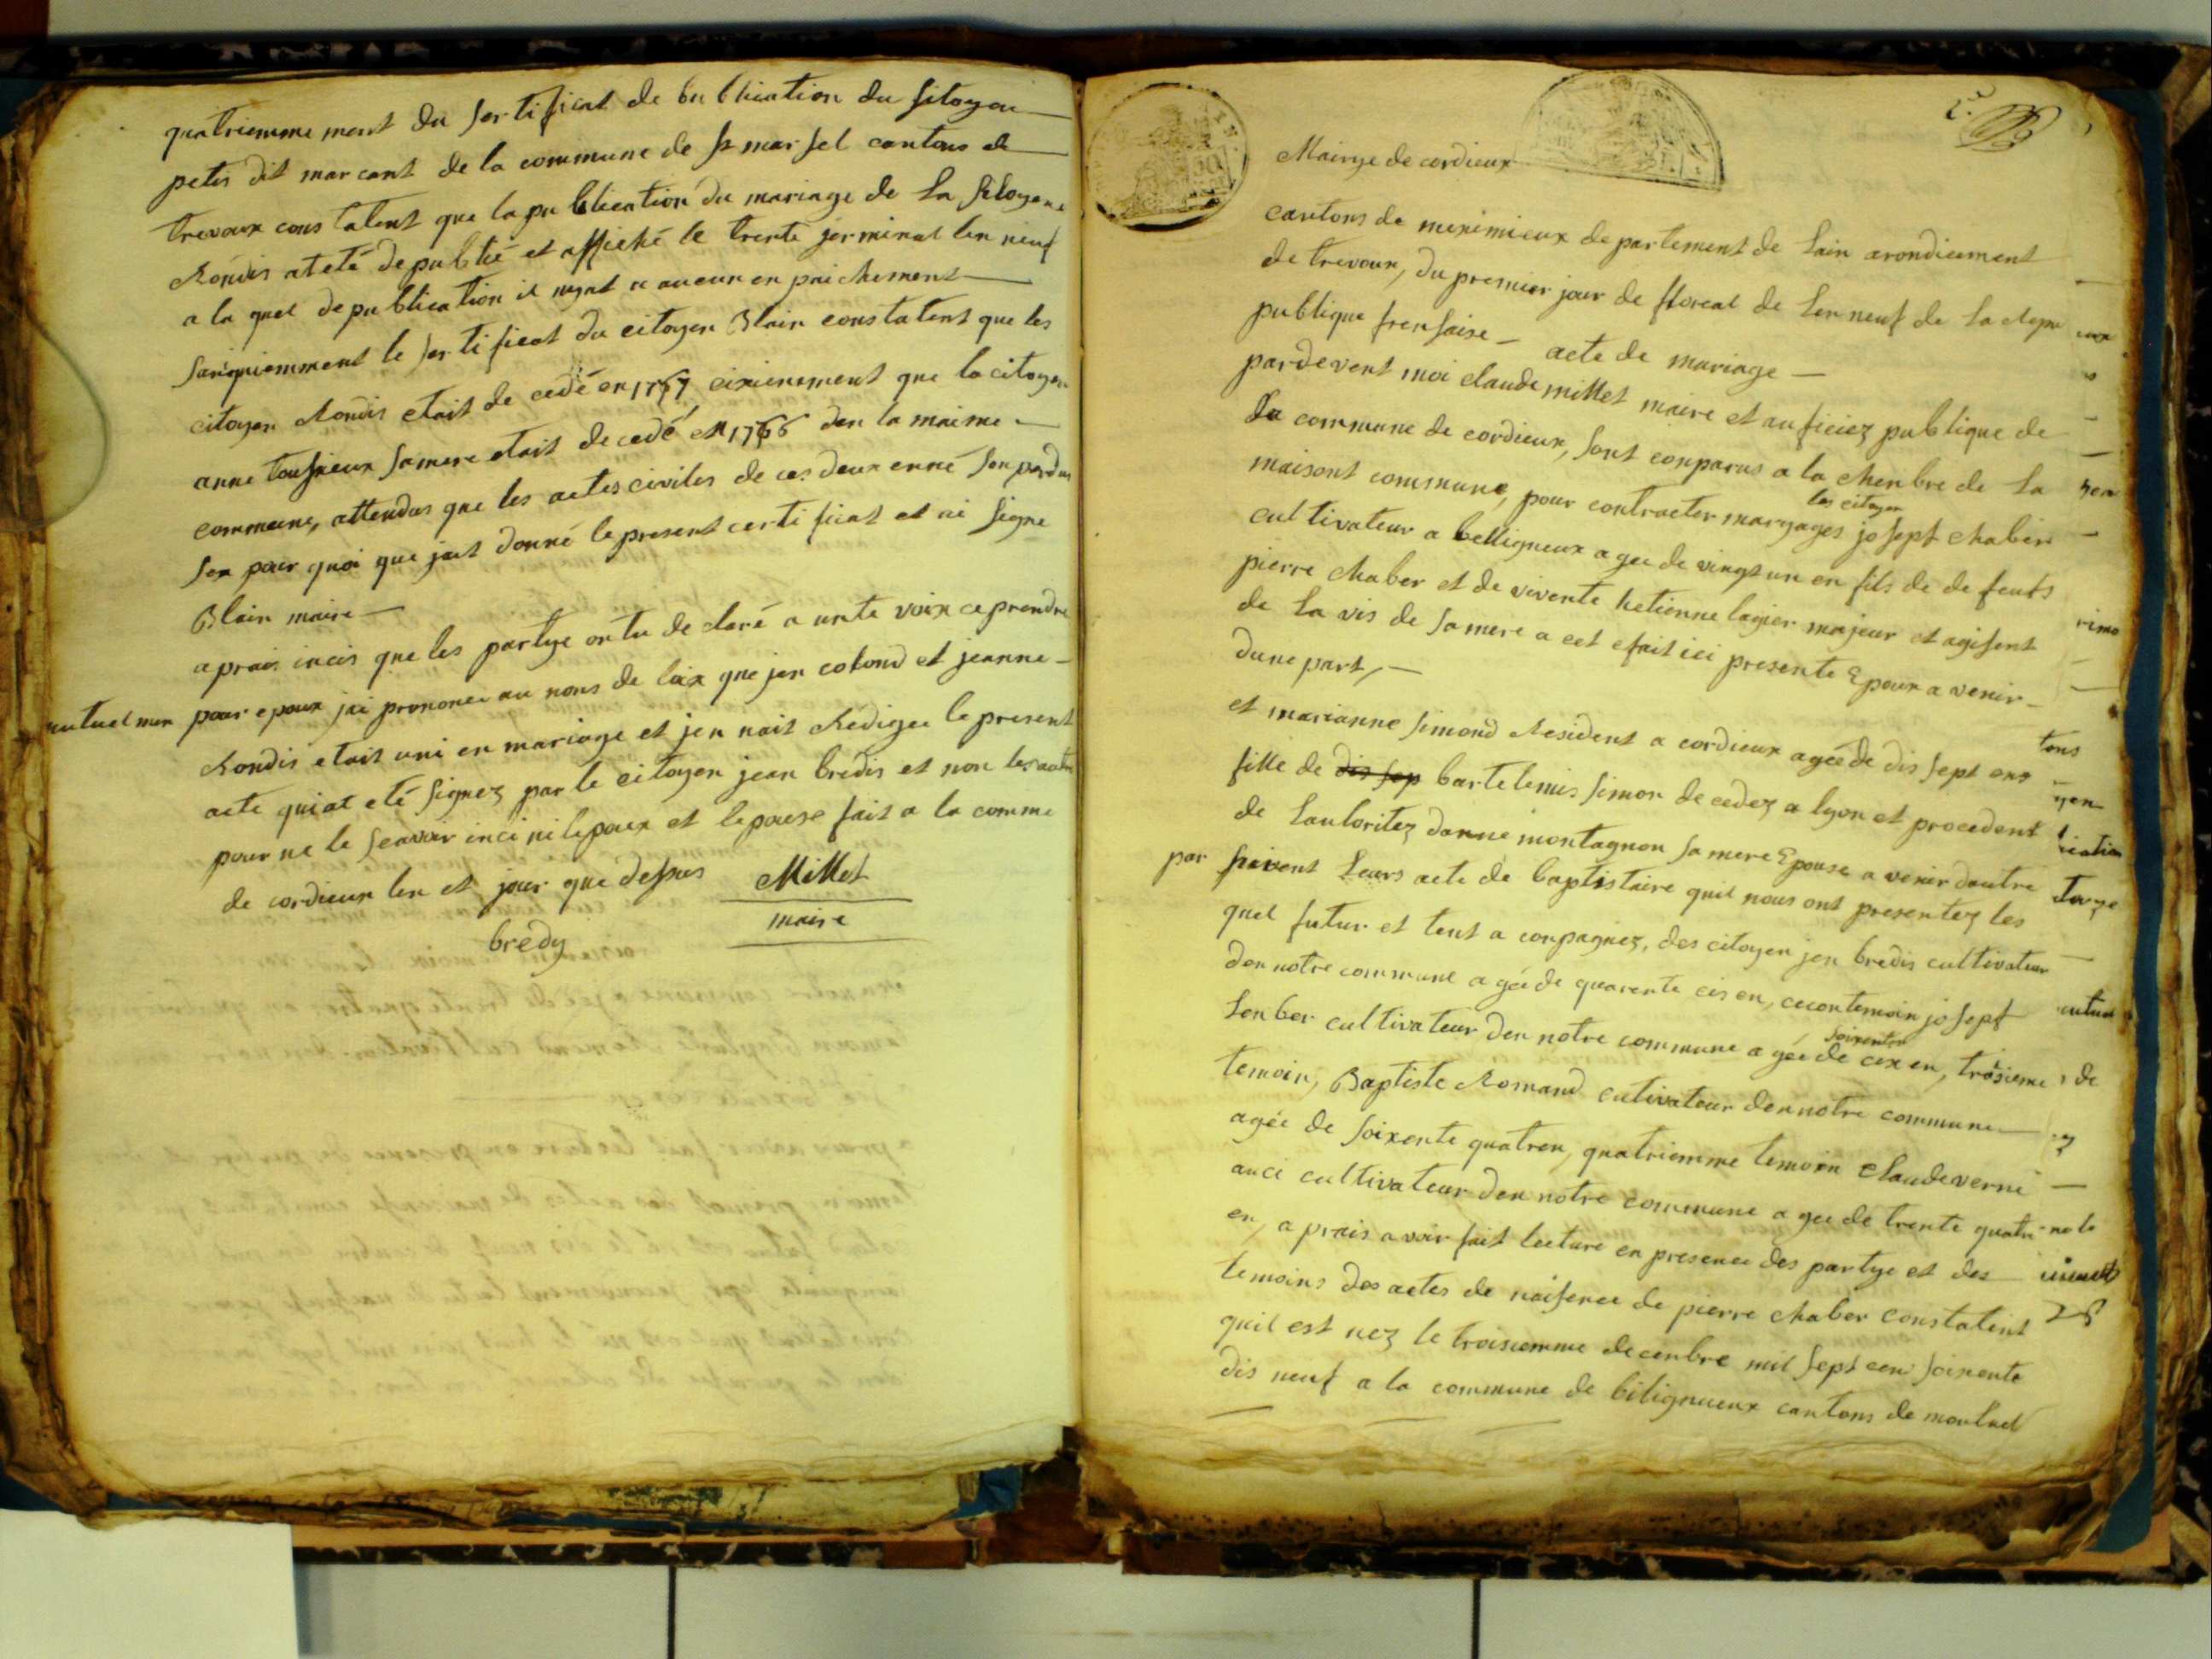 quatriemme ment du sertificat de bublication du sitoyen
petis dit marcant de la commune de st marsel cantons de
trevoux constatent que la publication du mariage de la sitoyene
Rondis at eté de publié et affiché le trente jerminal len neuf
a la quel de publication il nyat u aucun en paichement
sanquiemment le sertificat du citoyen Blain constatent que les
citoyen Rondis etait de cedé en 1767 cixienement que la citoyen
anne tousrieux sa mere etait decedé en 1766 den la maime
commune, attendus que les actes civiles de ces deux enné son perdus
sex pour quoi que jait donné le present certificat et ai signe
Blain maire
aprais incis que les partye on tu de claré a unte voix ce prendre
mutuelmen pour epoux jai prononcé au nons de loix que jen colond et jeanne
Rondis etait uni en mariage et jen nait Rédigee le present
acte qui at eté signez par le citoyen jean bredis et non les autre
pour ne le scavoir inci ni lepoux et lepouse fait a la comme
de cordieux len et jour que dessus
Millet
maire
bredy
Mairye de cordieux
cantons de meximieux departement de Lain arondicement
de trevoux, du premier jour de floreal de Len neuf de la Repu
publique frensaise acte de mariage
pardevent moi claude millet maire et auficiez publique de
La commune de cordieux, sont conparus a la chenbre de la
maisont commune, pour contracter maryages les citoyen josept chaber
cultivateur a belligneux agee de vingt un en fils de de feuts
pierre chaber et de vivente hetienne lagier majeur et agisent
de La vis de sa mere a cet efait ici presente Epoux a venir
dune part,
et marianne simond Resident a cordieux agée de dis sept ens
fille de dis sep bartelemis simon decedez a lyon et procedent
de Lautoritez danne montagnon sa mere Epouse a venir dautre
par suivent Leurs acte de baptistaire quil nous ont presentez les
quel futur et tent a conpagnez, des citoyen jen bredis cultivateur
den notre commune agée de quarente cis en, cecon temoin josept
Lenber cultivateur den notre commune agée de soixente cix en, troisieme
temoin, Baptiste Romand cutivateur den notre commune
agée de soixente quatren, quatriemme temoin claude verni
auci cultivateur den notre commune agee de trente quatre
en, aprais avoir fait lecture en presence des partye et des
temoins des actes de naissence de pierre chaber constatent
quil est nez le troisiemme decenbre mil sept cen soixente
dis neuf a la commune de biligneux cantons de montluel